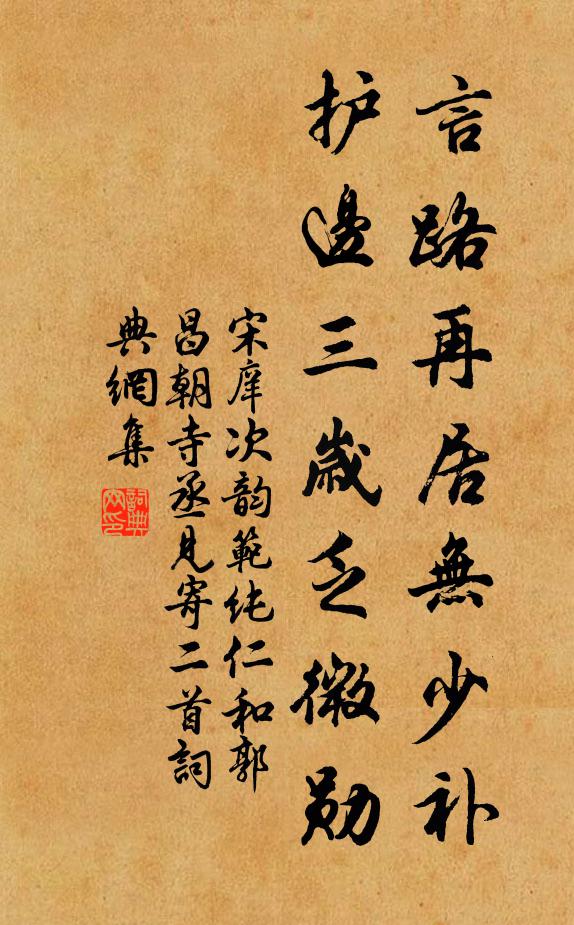 言路再居無少补
护邊三歲乏微勋
宋庠次韵範纯仁和郭
昌朝寺丞見寄二首詞
典網集
詞典網印